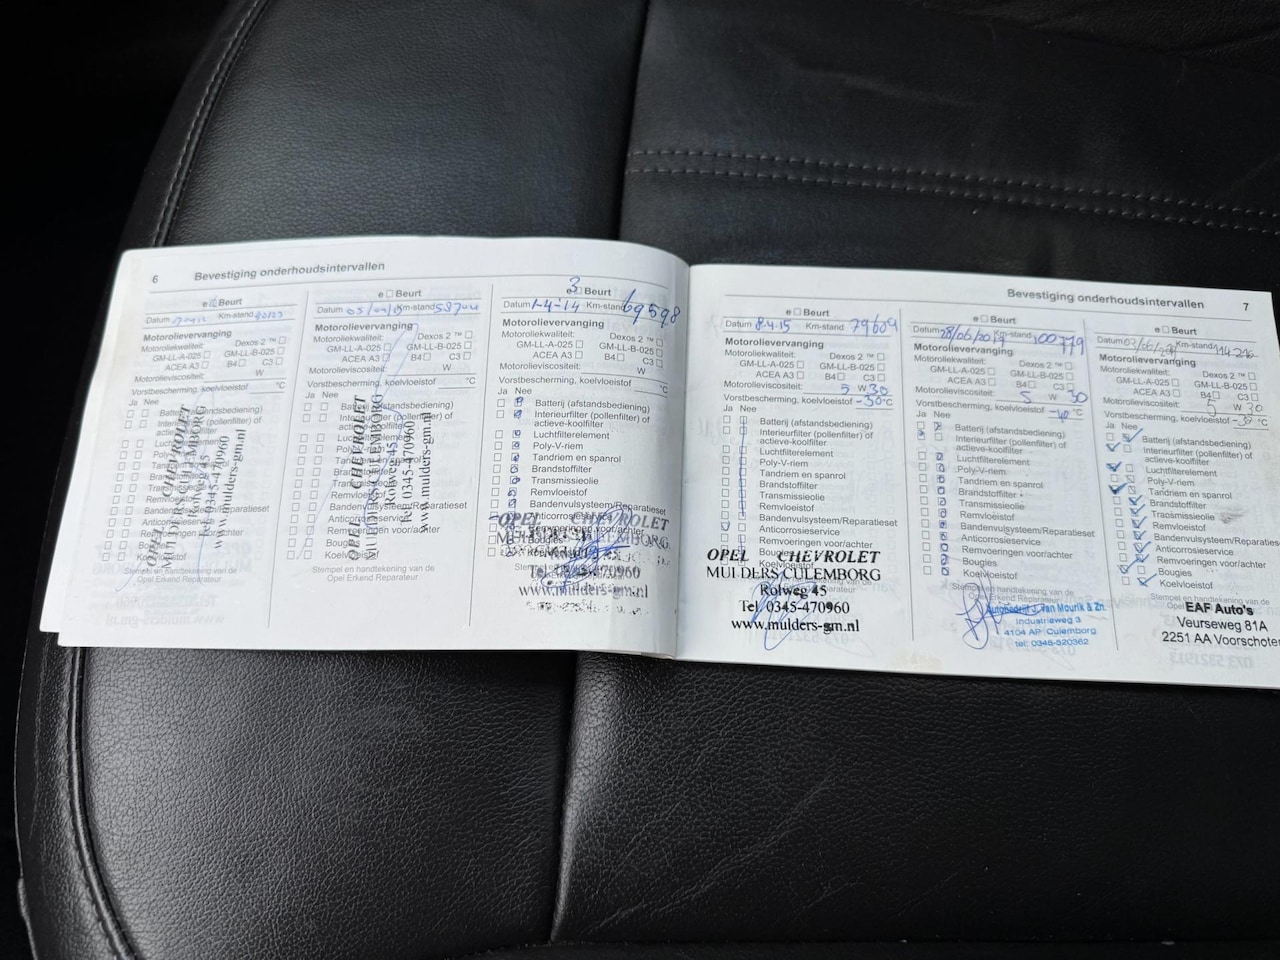 6 Bevestiging onderhoudsintervallen
e Beurt
Datum Km-stand
Motorolievervanging
Motoroliekwaliteit: Dexos 2 ™
GM-LL-A-025 GM-LL-B-025
ACEA A3 B4 C3
Motorolieviscositeit: W
Vorstbescherming, koelvloeistof °C
Ja Nee
Batterij (afstandsbediening)
Interieurfilter (pollenfilter) of
actieve-koolfilter
Luchtfilterelement
Poly-V-riem
Remvloeistof
Bandenvulsysteem/Reparatieset
Anticorrosieservice
Remvoeringen voor/achter
Bougies
Koelvloeistof
Stempel en handtekening van de
Opel Erkend Reparateur
OPEL CHEVROLET
MULDERS CULEMBORG
Rolweg 45
Tel. 0345-470960
www.mulders-gm.nl
e Beurt
Datum Km-stand
Motorolievervanging
Motoroliekwaliteit: Dexos 2 ™
GM-LL-A-025 GM-LL-B-025
ACEA A3 B4 C3
Motorolieviscositeit: W
Vorstbescherming, koelvloeistof °C
Ja Nee
Batterij (afstandsbediening)
Interieurfilter (pollenfilter) of
actieve-koolfilter
Luchtfilterelement
Poly-V-riem
Tandriem en spanrol
Brandstoffilter
Transmissieolie
Remvloeistof
Bandenvulsysteem/Reparatieset
Anticorrosieservice
Remvoeringen voor/achter
Bougies
Koelvloeistof
Stempel en handtekening van de
Opel Erkend Reparateur
OPEL CHEVROLET
MULDERS CULEMBORG
Rolweg 45
Tel. 0345-470960
www.mulders-gm.nl
3
e Beurt
Datum 1-4-14 Km-stand 69598
Motorolievervanging
Motoroliekwaliteit: Dexos 2 ™
GM-LL-A-025 GM-LL-B-025
ACEA A3 B4 C3
Motorolieviscositeit: W
Vorstbescherming, koelvloeistof °C
Ja Nee
Batterij (afstandsbediening)
Interieurfilter (pollenfilter) of
actieve-koolfilter
Luchtfilterelement
Poly-V-riem
Tandriem en spanrol
Brandstoffilter
Transmissieolie
Remvloeistof
Bandenvulsysteem/Reparatieset
Anticorrosieservice
Remvoeringen voor/achter
OPEL CHEVROLET
MULDERS CULEMBORG
Tel. 0345-470960
www.mulders-gm.nl
Bevestiging onderhoudsintervallen 7
e Beurt
Datum 8-4-15 Km-stand 79609
Motorolievervanging
Motoroliekwaliteit: Dexos 2 ™
GM-LL-A-025 GM-LL-B-025
ACEA A3 B4 C3
Motorolieviscositeit: 5 W 30
Vorstbescherming, koelvloeistof -30 °C
Ja Nee
Batterij (afstandsbediening)
Interieurfilter (pollenfilter) of
actieve-koolfilter
Luchtfilterelement
Poly-V-riem
Tandriem en spanrol
Brandstoffilter
Transmissieolie
Remvloeistof
Bandenvulsysteem/Reparatieset
Anticorrosieservice
Remvoeringen voor/achter
Bougies
Koelvloeistof
OPEL CHEVROLET
MULDERS CULEMBORG
Rolweg 45
Tel. 0345-470960
www.mulders-gm.nl
e Beurt
Datum Km-stand 100779
Motorolievervanging
Motoroliekwaliteit: Dexos 2 ™
GM-LL-A-025 GM-LL-B-025
ACEA A3 B4 C3
Motorolieviscositeit: 5 W 30
Vorstbescherming, koelvloeistof °C
Ja Nee
Batterij (afstandsbediening)
Interieurfilter (pollenfilter) of
actieve-koolfilter
Luchtfilterelement
Poly-V-riem
Tandriem en spanrol
Brandstoffilter
Transmissieolie
Remvloeistof
Bandenvulsysteem/Reparatieset
Anticorrosieservice
Remvoeringen voor/achter
Bougies
Koelvloeistof
Stempel en handtekening van de
Opel Erkend Reparateur
Autobedrijf J. van Mourik & Zn.
Industrieweg 3
4104 AP Culemborg
tel: 0345-520362
e Beurt
Datum Km-stand
Motorolievervanging
Motoroliekwaliteit: Dexos 2 ™
GM-LL-A-025 GM-LL-B-025
ACEA A3 B4 C3
Motorolieviscositeit: 5 W 30
Vorstbescherming, koelvloeistof °C
Ja Nee
Batterij (afstandsbediening)
Interieurfilter (pollenfilter) of
actieve-koolfilter
Luchtfilterelement
Poly-V-riem
Tandriem en spanrol
Brandstoffilter
Transmissieolie
Remvloeistof
Bandenvulsysteem/Reparatieset
Anticorrosieservice
Remvoeringen voor/achter
Bougies
Koelvloeistof
Stempel en handtekening van de
Opel
EAF Auto's
Veurseweg 81A
2251 AA Voorschoten